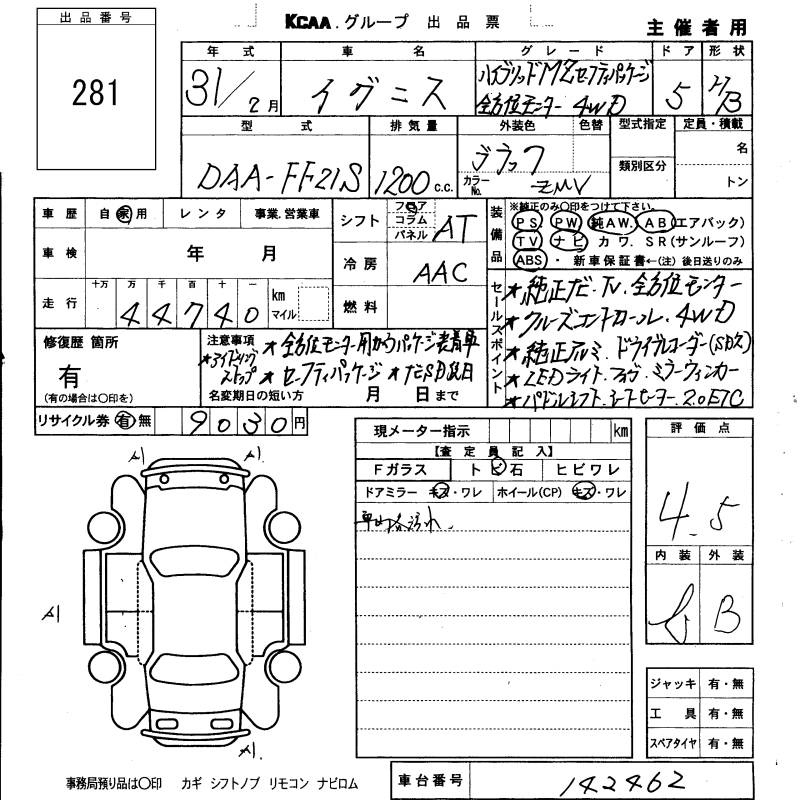 出品番号
281
KCAA.グループ 出品票
主催者用
年式 車名 グレード ドア 形状
31/2月 イグニス ハイブリッドMZセーフティパッケージ 5 H/B
全方位モニター 4WD
型式 排気量 外装色 色替 型式指定 定員・積載
DAA-FF21S 1200c.c. ブラック 名
カラーNo. ZMV 類別区分 トン
車歴 自家用 レンタ 事業.営業車
シフト フロア コラム パネル AT
装備品
※純正のみ〇印をつけて下さい。
PS. PW. 純AW. AB(エアバック)
TV ナビ カワ. SR(サンルーフ)
ABS ・ 新車保証書←(注) 後日送りのみ
車検 年 月
冷房 AAC
走行 十万 万 千 百 十 一
44740 km マイル
燃料
セールスポイント
★純正ナビ.TV.全方位モニター
★クルーズコントロール.4WD
★純正アルミ.ドライブレコーダー(SDス)
★LEDライト.フォグ.ミラーウィンカー
★パドルシフト.シートヒーター.2.0ETC
修復歴 箇所
有
(有の場合は〇印を)
注意事項
★アイドリングストップ
★全方位モニター用カメラパッケージ装着車
★セーフティパッケージ ★ナビSD後日
名変期日の短い方 月 日まで
リサイクル券 有 無 9030円
現メーター指示 km
【査定員記入】
Fガラス トビ石 ヒビワレ
ドアミラー キズ・ワレ ホイール(CP) キズ・ワレ
車内汚れ.
評価点
4.5
内装 外装
B
A1 A1
A1
A1
ジャッキ 有・無
工具 有・無
スペアタイヤ 有・無
事務局預り品は〇印 カギ シフトノブ リモコン ナビロム
車台番号 142462